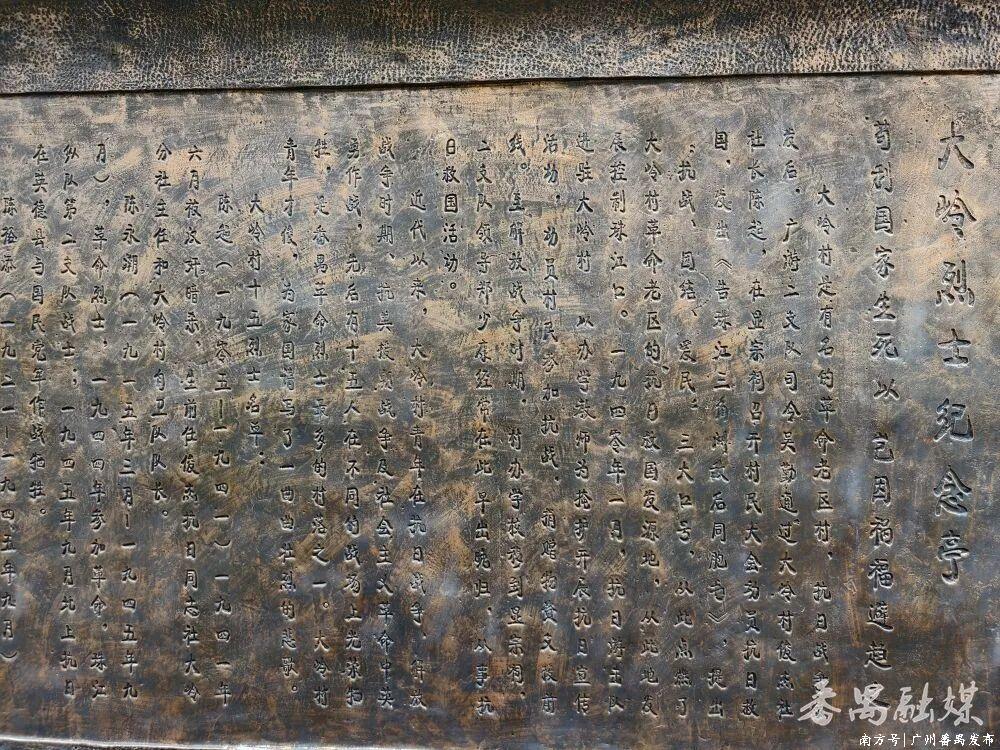 大岭烈士纪念亭
苟利国家生死以 岂因祸福避趋
大岭村是有名的革命老区村，抗日战争
发后，广游二支队司令吴勤通过大岭村俊杰社
社长陈起，在显宗祠召开村民大会动员抗日救
国，发出《告珠江三角洲敌后同胞书》，提出
“抗战、团结、爱民”三大口号，从此点燃了
大岭村革命老区的抗日救国发源地，从此地发
展控制珠江口。一九四零年一月，抗日游击队
进驻大岭村，以办学教师为掩护开展抗日宣传
活动，动员村民参加抗战，捐赠物资支援前
线。主解放战争时期，村办学校移到显宗祠，
二支队领导郑少康经常在此早出晚归，从事抗
日救国活动。
近代以来，大岭村青年在抗日战争、解放
战争时期、抗美援朝战争及社会主义革命中英
勇作战，先后有十五人在不同的战场上光荣牺
牲，是番禺革命烈士最多的村落之一。大岭村
青年才俊，为家国谱写了一曲曲壮烈的悲歌。
大岭村十五烈士名单：
陈起（一九零五－一九四一）一九四一年
六月被敌奸暗杀，生前任俊杰抗日同志社大岭
分社主任和大岭村自卫队队长。
陈永潮（一九一五年三月－一九四五年九
月），革命烈士，一九四四年参加革命，珠江
纵队第二支队战士；一九四五年九月北上抗日
在英德县与国民党军作战牺牲。
陈裕添（一九二一－一九四五年九月）
番禺融媒
南方号|广州番禺发布